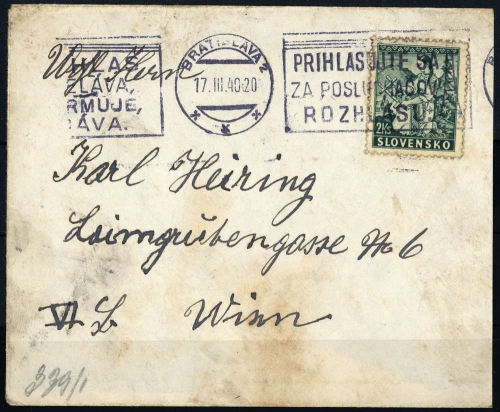 HLAŠ
ZLÁVA,
RMUJE,
ÁVA.
BRATISLAVA 2
17.III.40-20
PRIHLASUJTE SA
ZA POSLUCHAČOV
ROZHLASU
2 Ks
SLOVENSKO
Karl Heiring
Laimgrubengasse No 6
VI. B. Wien
339/1